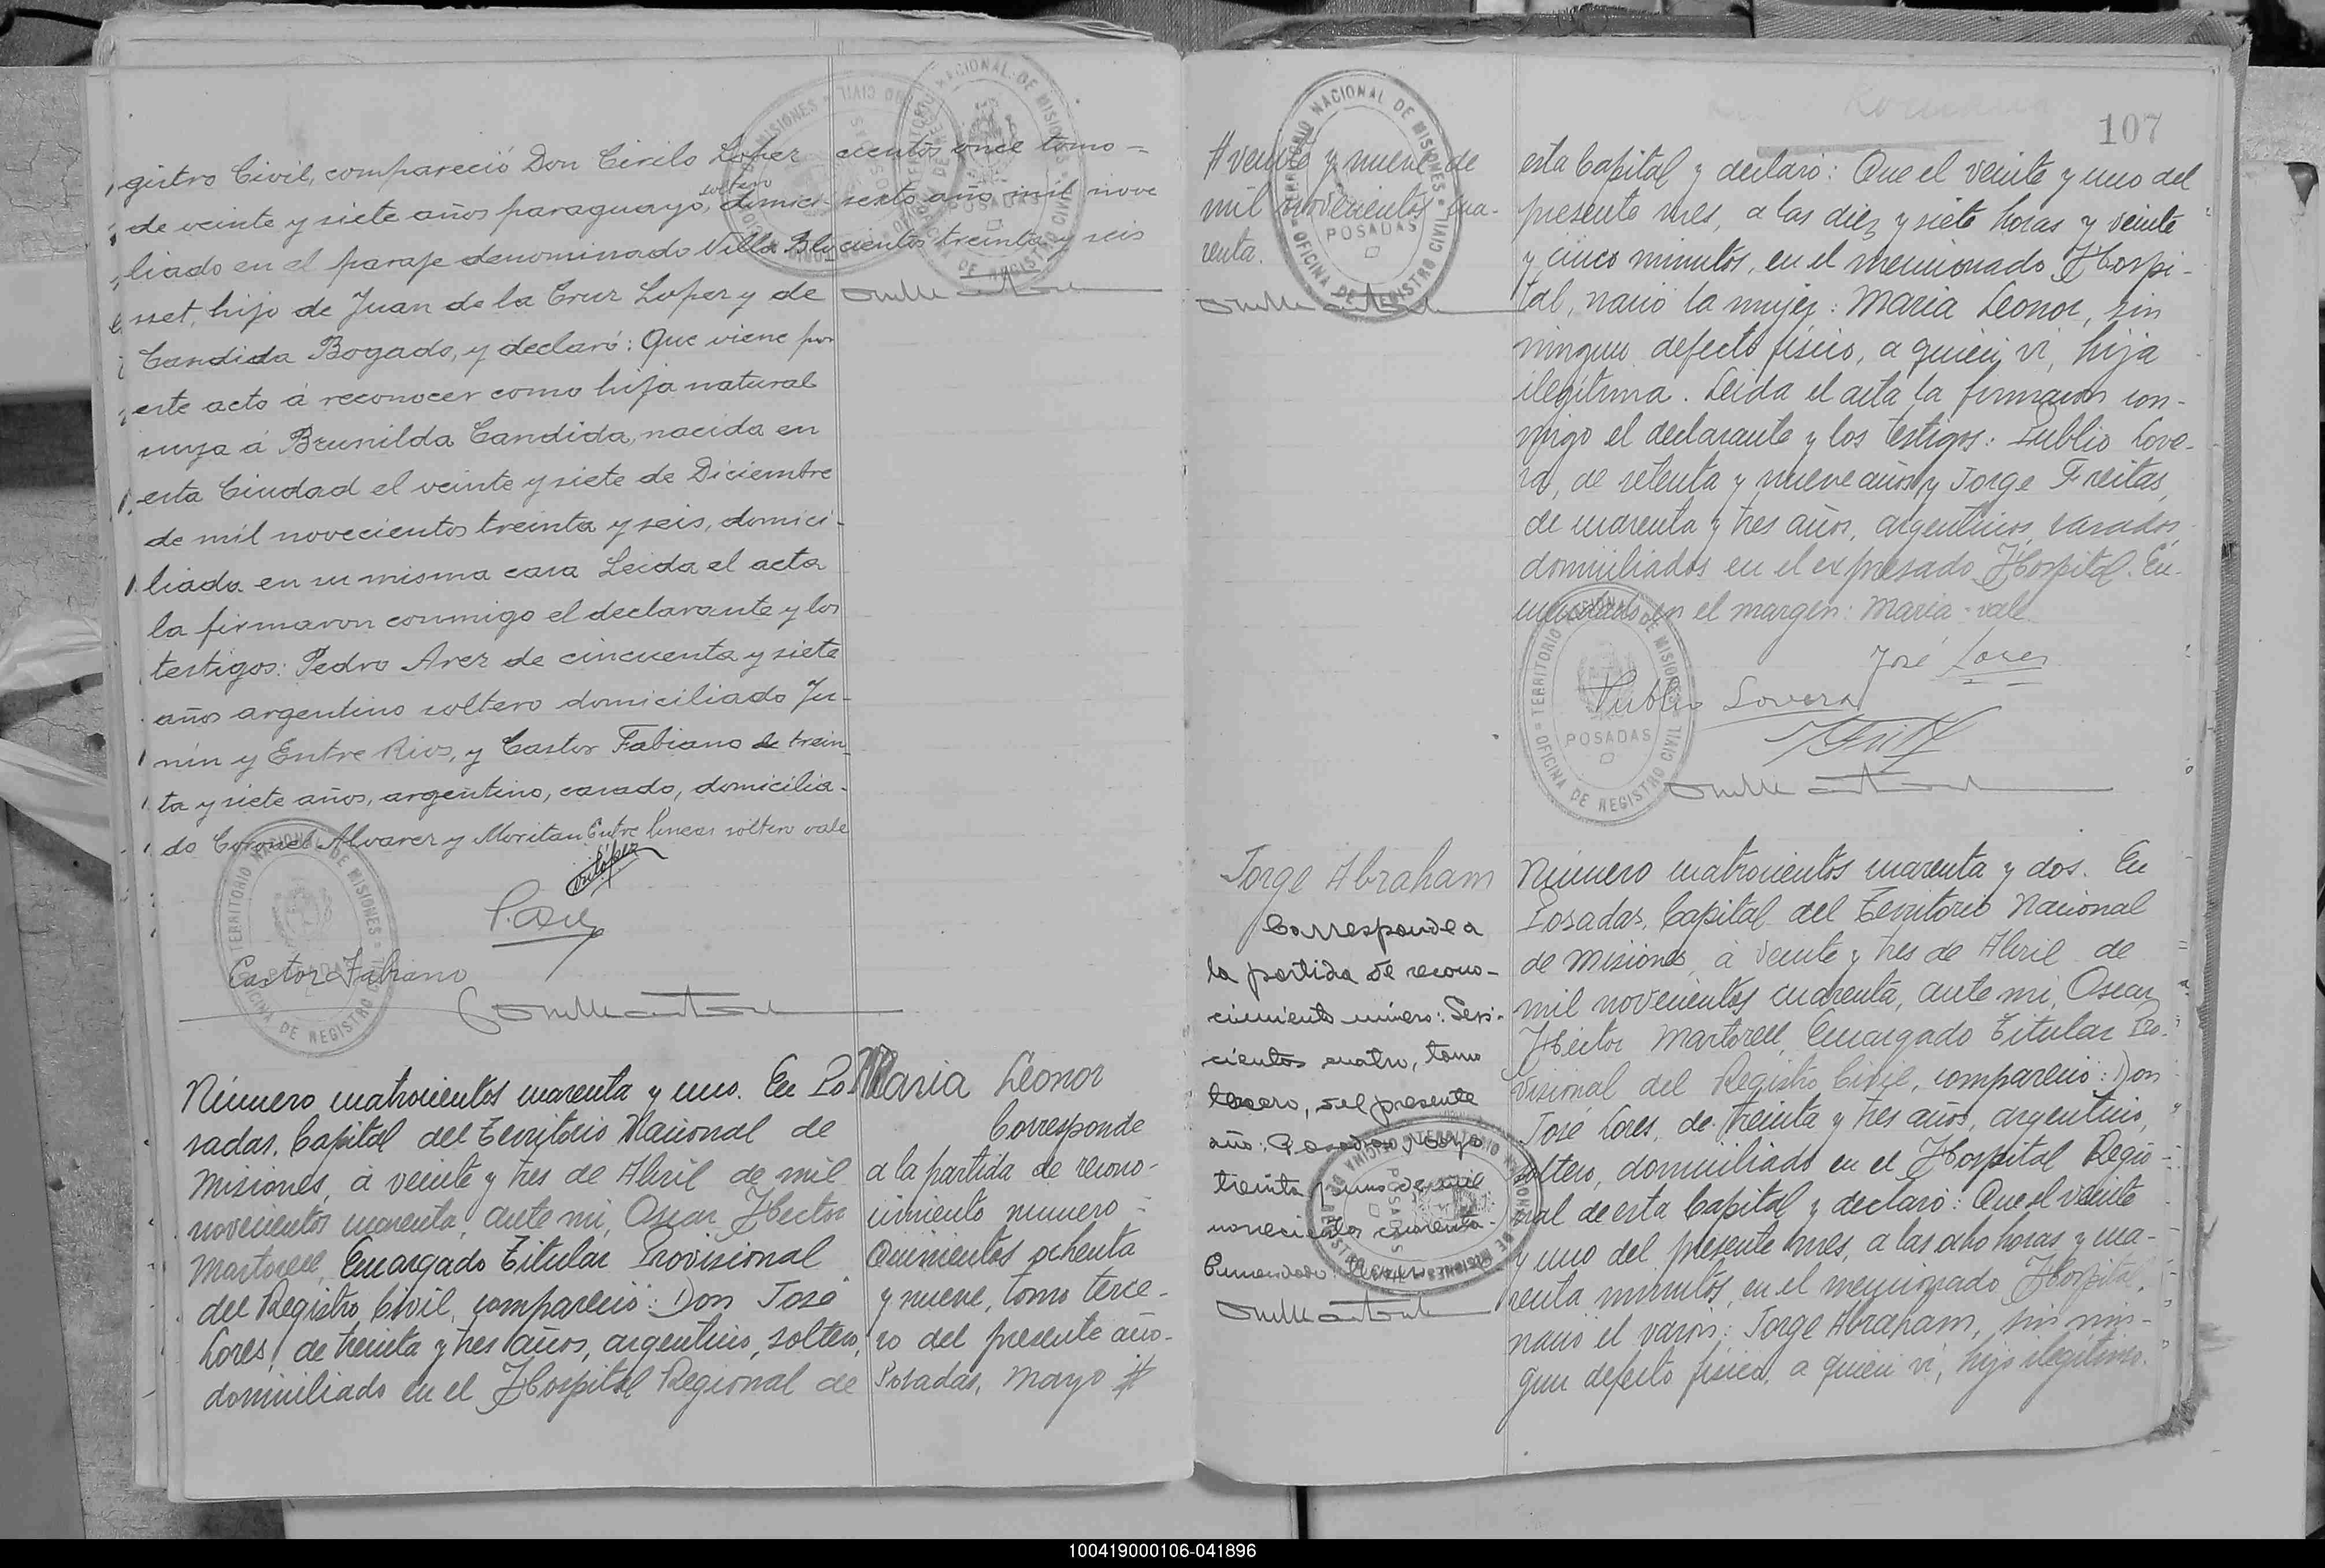 gistro Civil, compareció Don Cirilo Lopez
de veinte y siete años paraguayo, soltero domici-
liado en el paraje denominado Villa Blo
sset, hijo de Juan de la Cruz Lopez y de
Candida Bogado, y declaró: Que viene por
este acto á reconocer como hija natural
suya á Brunilda Candida, nacida en
esta Ciudad el veinte y siete de Diciembre
de mil novecientos treinta y seis, domici-
liada en su misma casa Leida el acta
la firmaron conmigo el declarante y los
testigos: Pedro Avez de cincuenta y siete
años argentino soltero domiciliado Ju-
nin y Entre Rios, y Castor Fabiano de trein
ta y siete años, argentino, casado, domicilia-
do Coronel Alvarez y Moritan Entre lineas soltero vale
Castor Fabiano
TERRITORIO NACIONAL DE MISIONES
OFICINA DE REGISTRO CIVIL
cientos once tomo =
sexto año mil nove
cientos treinta y seis
TERRITORIO NACIONAL DE MISIONES
OFICINA DE REGISTRO CIVIL
POSADAS
Número cuatrocientos cuarenta y uno. En Po-
sadas, Capital del Territorio Nacional de
Misiones, á veinte y tres de Abril de mil
novecientos cuarenta, ante mi, Oscar Hector
Martorell, Encargado Titular Provisional
del Registro Civil, compareció: Don José
Lores, de treinta y tres años, argentino, soltero,
domiciliado en el Hospital Regional de
Maria Leonor
Corresponde
a la partida de recono-
cimiento numero
Quinientos ochenta
y nueve, tomo terce-
ro del presente año-
Posadas, Mayo #
# veinte y nueve de
mil novecientos cua-
renta.
TERRITORIO NACIONAL DE MISIONES
OFICINA DE REGISTRO CIVIL
POSADAS
107
esta Capital y declaró: Que el veinte y uno del
presente mes, a las diez y siete horas y veinte
y cinco minutos, en el mencionado Hospi-
tal, nació la mujer: Maria Leonor, sin
ningun defecto físico, a quien vi, hija
ilegítima. Leida el acta la firmaron con-
migo el declarante y los testigos: Publio Love-
ra, de setenta y nueve años y Jorge Freitas,
de cuarenta y tres años, argentinos, casados,
domiciliados en el expresado Hospital. En-
mendados en el margen: Maria-vale
José Lores
Publio Lovera
TERRITORIO NACIONAL DE MISIONES
OFICINA DE REGISTRO CIVIL
POSADAS
Jorge Abraham
Corresponde a
la partida de recono-
cimiento número: Seis-
cientos cuatro, tomo
tercero, del presente
año. Posadas, Mayo
treinta y uno de mil
novecientos cuarenta-
Enmendado:
POSADAS
Número cuatrocientos cuarenta y dos. En
Posadas, Capital del Territorio Nacional
de Misiones, á veinte y tres de Abril de
mil novecientos cuarenta, ante mi, Oscar
Héctor Martorell, Encargado Titular Pro-
visional del Registro Civil, compareció: Don
José Lores, de treinta y tres años, argentino,
soltero, domiciliado en el Hospital Regio-
nal de esta Capital y declaró: Que el veinte
y uno del presente mes, a las ocho horas y cua-
renta minutos, en el mencionado Hospital,
nació el varon: Jorge Abraham, sin nin-
gun defecto físico, a quien vi, hijo ilegítimo.
100419000106-041896